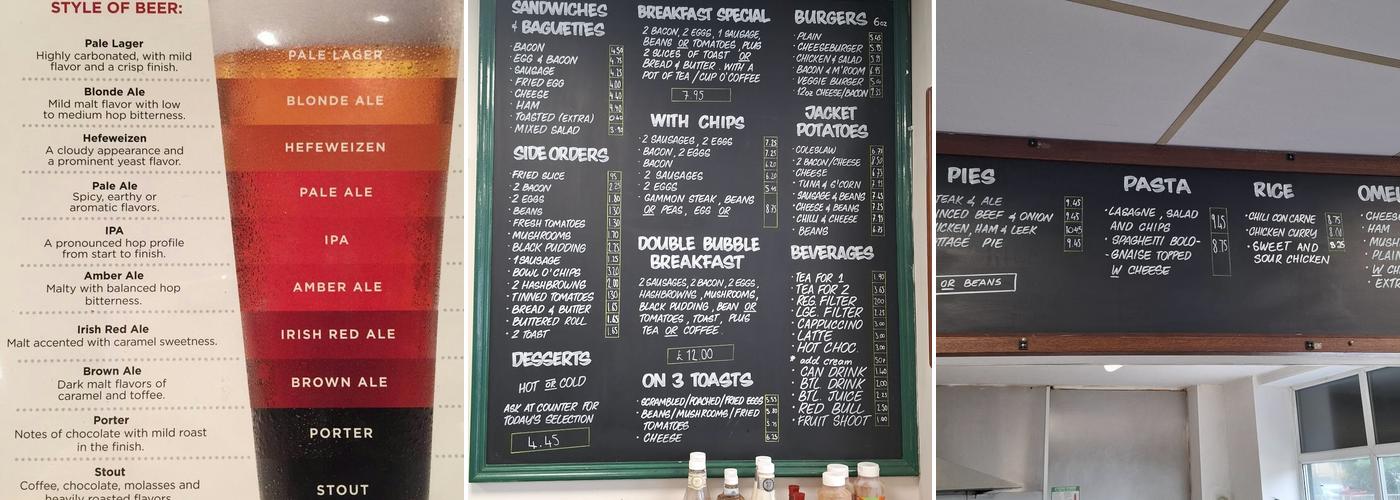 STYLE OF BEER:
Pale Lager
Highly carbonated, with mild
flavor and a crisp finish.
Blonde Ale
Mild malt flavor with low
to medium hop bitterness.
Hefeweizen
A cloudy appearance and
a prominent yeast flavor.
Pale Ale
Spicy, earthy or
aromatic flavors.
IPA
A pronounced hop profile
from start to finish.
Amber Ale
Malty with balanced hop
bitterness.
Irish Red Ale
Malt accented with caramel sweetness.
Brown Ale
Dark malt flavors of
caramel and toffee.
Porter
Notes of chocolate with mild roast
in the finish.
Stout
Coffee, chocolate, molasses and
heavily roasted flavors
PALE LAGER
BLONDE ALE
HEFEWEIZEN
PALE ALE
IPA
AMBER ALE
IRISH RED ALE
BROWN ALE
PORTER
STOUT
SANDWICHES
& BAGUETTES
· BACON 4.50
· EGG & BACON 4.75
· SAUSAGE 4.25
· FRIED EGG 4.00
· CHEESE
· HAM 4.40
· TOASTED (EXTRA) 0.40
· MIXED SALAD 3.90
SIDE ORDERS
· FRIED SLICE 95
· 2 BACON 2.25
· 2 EGGS 1.80
· BEANS 1.30
· FRESH TOMATOES 1.30
· MUSHROOMS 1.70
· BLACK PUDDING 1.75
· 1 SAUSAGE 1.25
· BOWL O'CHIPS 3.20
· 2 HASHBROWNS 2.00
· TINNED TOMATOES 1.30
· BREAD & BUTTER 1.65
· BUTTERED ROLL 1.65
· 2 TOAST 1.65
DESSERTS
HOT OR COLD
ASK AT COUNTER FOR
TODAY'S SELECTION
4.45
BREAKFAST SPECIAL
2 BACON, 2 EGGS, 1 SAUSAGE,
BEANS OR TOMATOES, PLUS
2 SLICES OF TOAST OR
BREAD & BUTTER WITH A
POT OF TEA / CUP O'COFFEE
7.95
WITH CHIPS
· 2 SAUSAGES, 2 EGGS 7.25
· BACON, 2 EGGS 7.25
· BACON 6.20
· 2 SAUSAGES 6.20
· 2 EGGS 5.45
· GAMMON STEAK, BEANS
OR PEAS, EGG OR 8.75
DOUBLE BUBBLE
BREAKFAST
2 SAUSAGES, 2 BACON, 2 EGGS,
HASHBROWNS, MUSHROOMS,
BLACK PUDDING, BEAN OR
TOMATOES, TOAST, PLUS
TEA OR COFFEE.
£12.00
ON 3 TOASTS
· SCRAMBLED/POACHED/FRIED EGGS 5.55
· BEANS/MUSHROOMS/FRIED 5.80
TOMATOES 5.75
· CHEESE 6.25
BURGERS 6oz
· PLAIN 5.45
· CHEESEBURGER 5.95
· CHICKEN & SALAD
· BACON & M'ROOM 6.95
· VEGGIE BURGER
· 12oz CHEESE/BACON
JACKET
POTATOES
· COLESLAW 6.75
· 2 BACON/CHEESE 8.50
· CHEESE 6.75
· TUNA & S'CORN
· SAUSAGE & BEANS
· CHEESE & BEANS 7.25
· CHILLI & CHEESE 7.95
· BEANS
BEVERAGES
· TEA FOR 1 1.90
· TEA FOR 2 3.65
· REG. FILTER 2.00
· LGE. FILTER 2.25
· CAPPUCCINO 3.00
· LATTE 3.00
· HOT CHOC. 3.00
* add cream 30P
· CAN DRINK 1.40
· BTL DRINK 2.00
· BTL. JUICE 2.25
· RED BULL 2.50
· FRUIT SHOOT 1.00
PIES
TEAK & ALE 9.45
INCED BEEF & ONION 9.45
ICKEN, HAM & LEEK 10.45
TTAGE PIE 9.45
OR BEANS
PASTA
· LASAGNE, SALAD 9.25
AND CHIPS
· SPAGHETTI BOLO- 8.75
GNAISE TOPPED
W CHEESE
RICE
· CHILI CON CARNE 8.75
· CHICKEN CURRY 8.00
· SWEET AND 8.25
SOUR CHICKEN
OMEL
· CHEES
· HAM
· MUSH
· PLAIN
· W CH
· EXTR